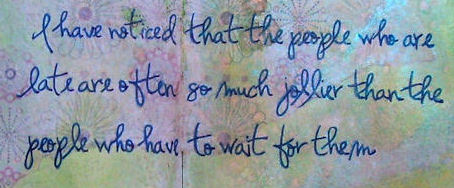 I have noticed that the people who are
late are often so much jollier than the
people who have to wait for them